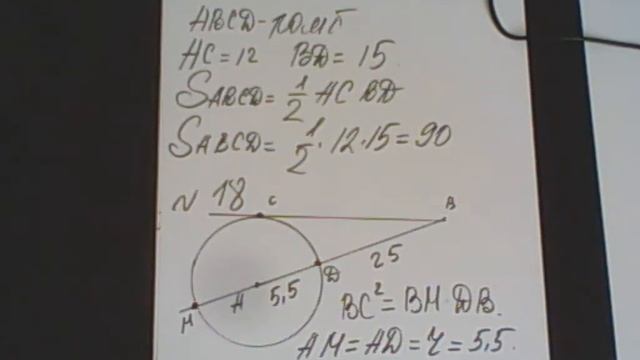 ABCD - ромб
AC = 12 BD = 15
SABCD = 1/2 AC BD
SABCD = 1/2 · 12 · 15 = 90
N 18
C
B
25
D
A 5,5
M
BC² = BM · DB.
AM = AD = r = 5,5.